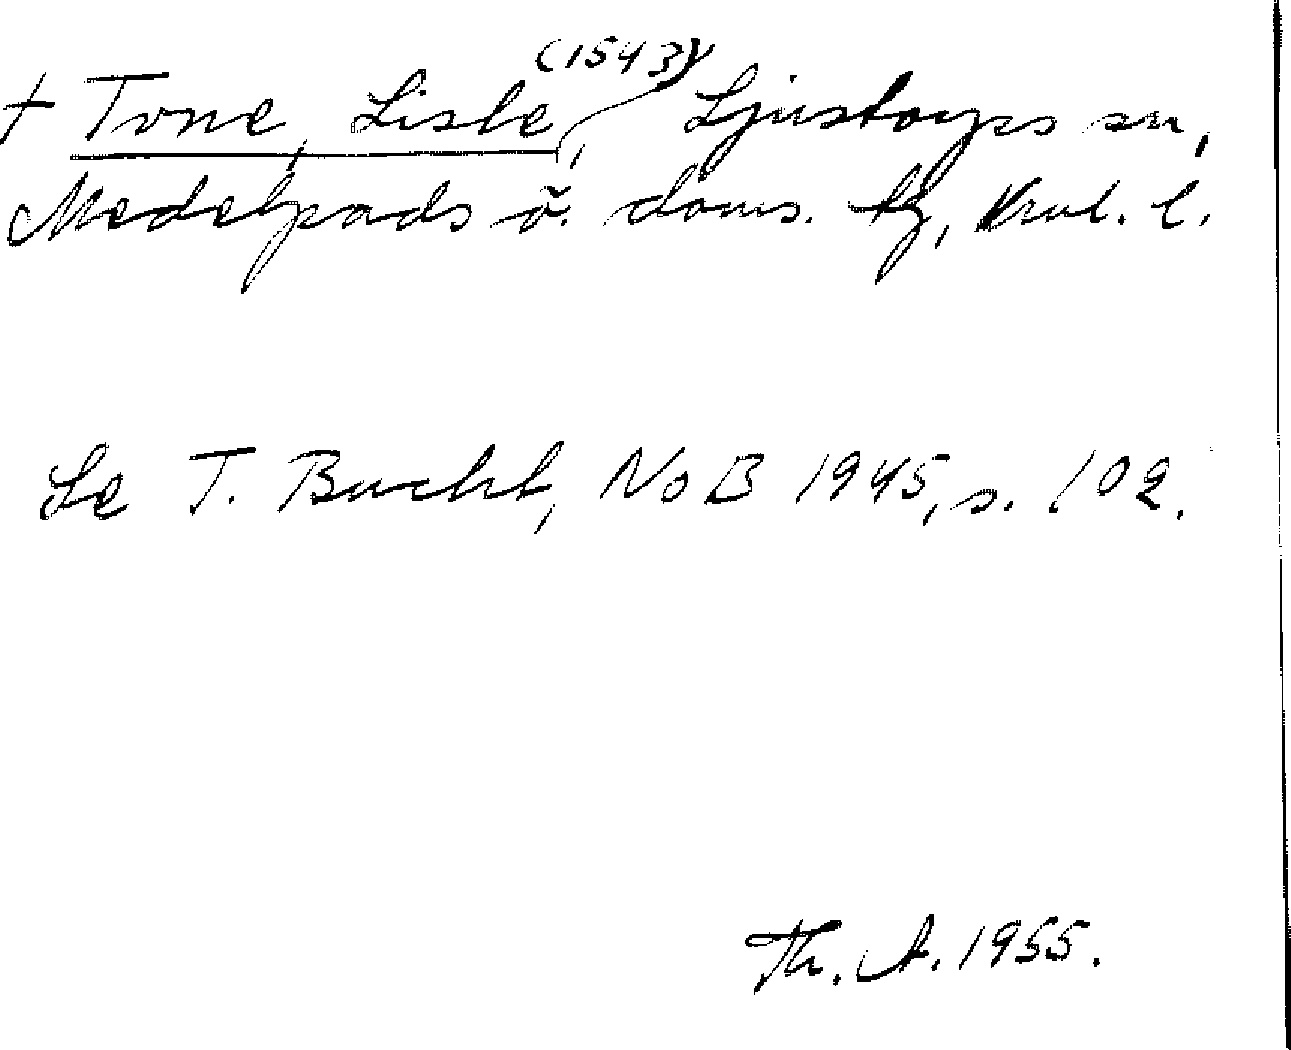 (1543)
† Tvne, Lisle, Ljustorps sn,
Medelpads ö. doms. tg, Vnl. l.
Se T. Bucht, NoB 1945, s. 102.
Th. A. 1955.